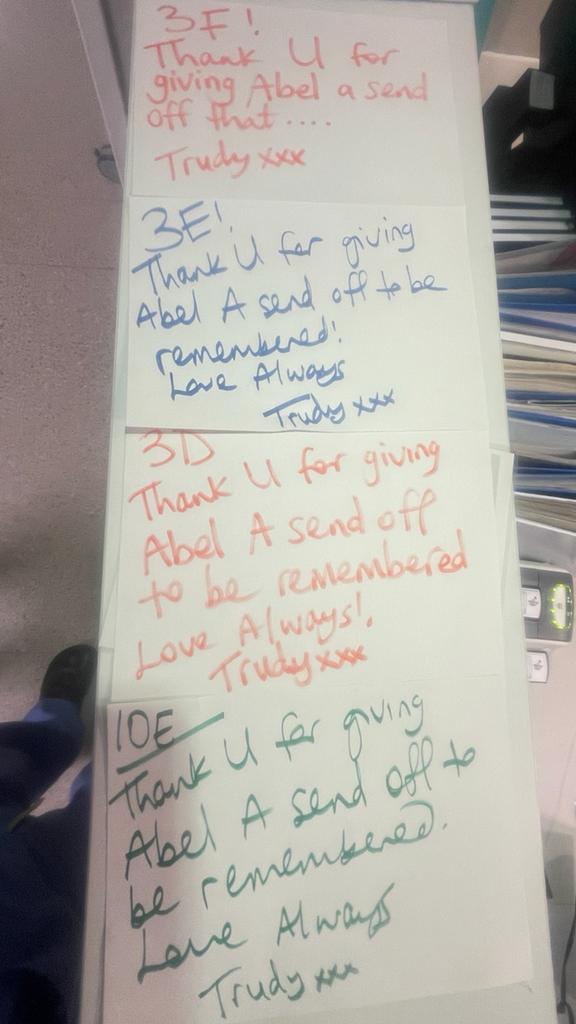 3F!
Thank U for
giving Abel a send
off that....
Trudy xxx
3E!
Thank U for giving
Abel A send off to be
remembered!
Love Always
Trudy xxx
3D
Thank U for giving
Abel A send off
to be remembered
Love Always!
Trudy xxx
10E
Thank U for giving
Abel A send off to
be remembered.
Love Always
Trudy xxx